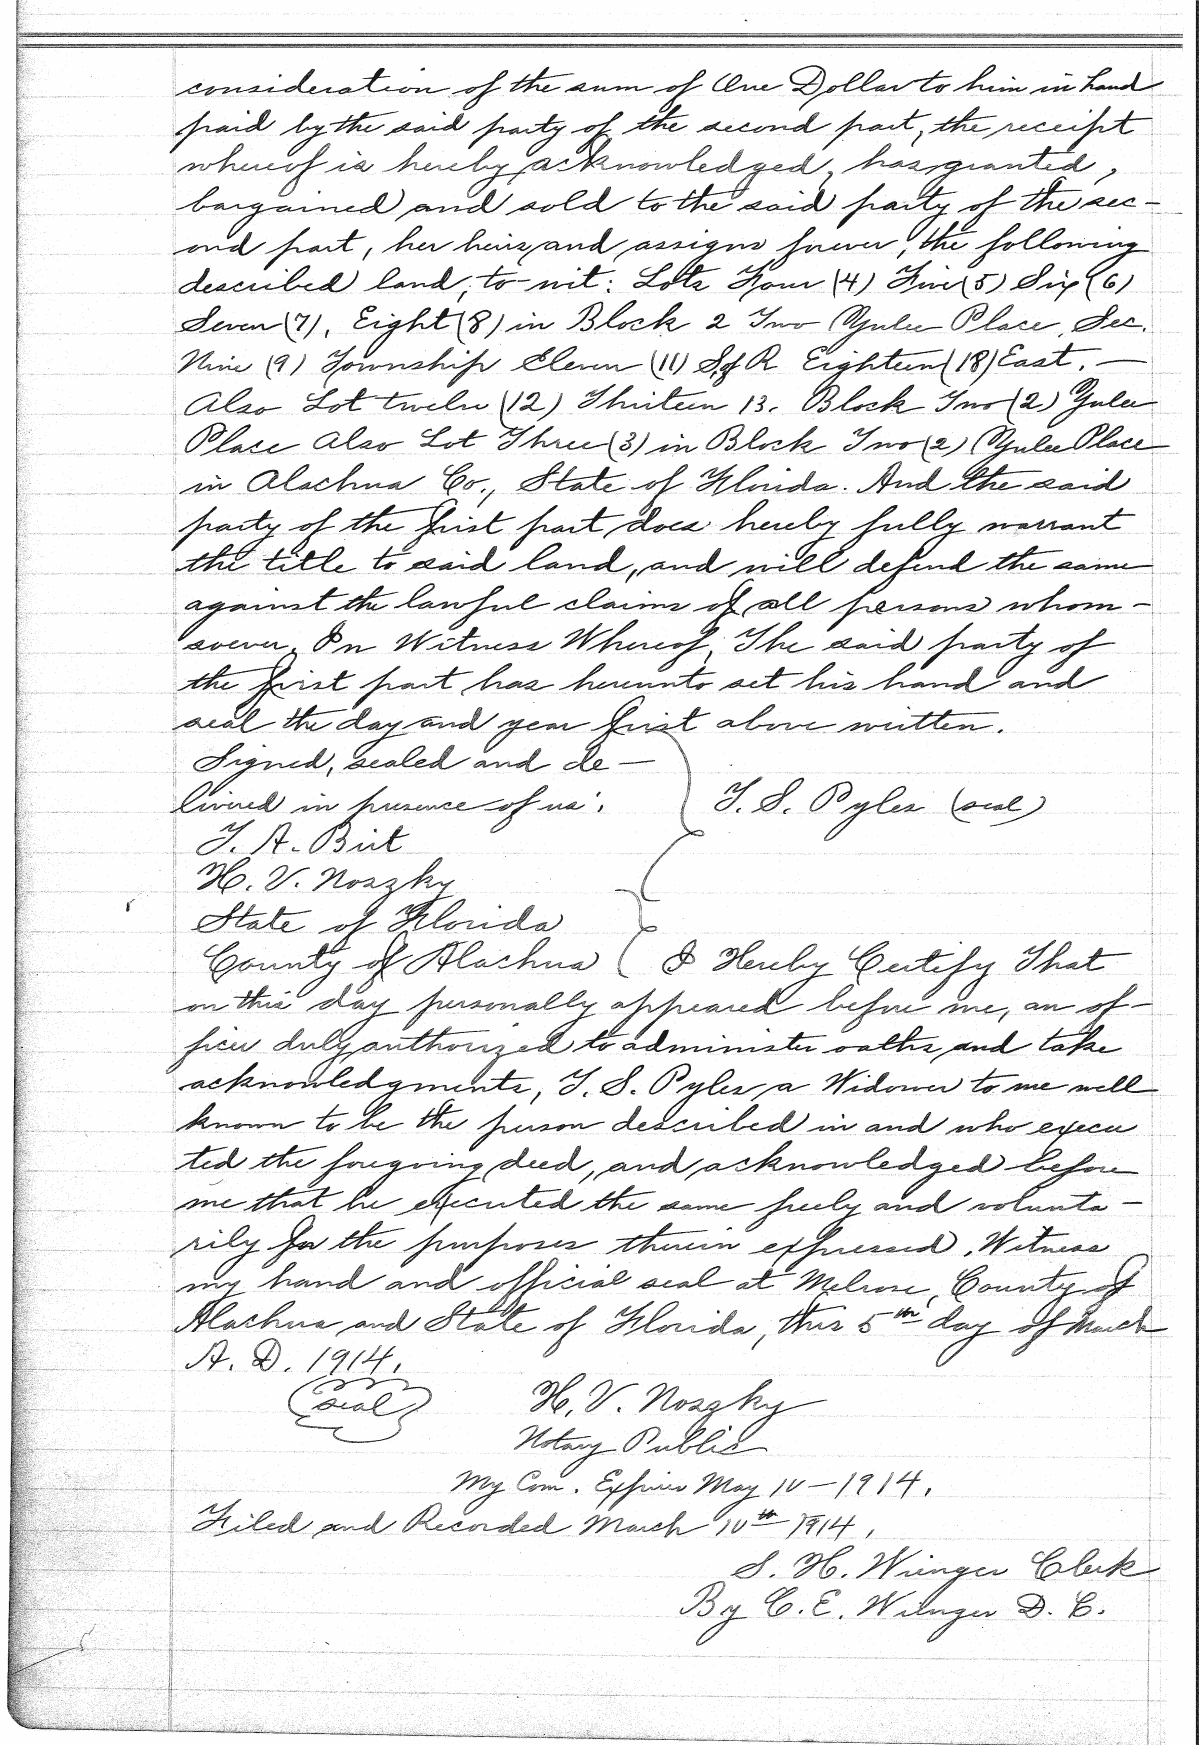 consideration of the sum of One Dollar to him in hand
paid by the said party of the second part, the receipt
whereof is hereby acknowledged, has granted,
bargained and sold to the said party of the sec-
ond part, her heirs and assigns forever, the following
described land, to-wit: Lots Four (4) Five (5) Six (6)
Seven (7), Eight (8) in Block 2 Two Yulee Place, Sec.
Nine (9) Township Eleven (11) S of R Eighteen (18) East. —
Also Lot twelv (12) Thirteen 13. Block Two (2) Yulee
Place Also Lot Three (3) in Block Two (2) Yulee Place
in Alachua Co., State of Florida. And the said
party of the first part does hereby fully warrant
the title to said land, and will defend the same
against the lawful claims of all persons whom-
soever. In Witness Whereof, The said party of
the first part has hereunto set his hand and
seal the day and year first above written.
Signed, sealed and de-
livered in presence of us: T. S. Pyles (seal)
T. A. Birt
H. V. Noszky
State of Florida
County of Alachua ( I Hereby Certify That
on this day personally appeared before me, an of-
ficer duly authorized to administer oaths and take
acknowledgments, T. S. Pyles, a Widower to me well
known to be the person described in and who execu
ted the foregoing deed, and acknowledged before
me that he executed the same freely and volunta-
rily for the purposes therein expressed. Witness
my hand and official seal at Melrose, County of
Alachua and State of Florida, this 5th day of March
A. D. 1914.
(seal) H. V. Noszky
Notary Public
My Com. Expires May 10-1914.
Filed and Recorded March 10th 1914.
S. H. Wienges Clerk
By C. E. Wienges D. C.